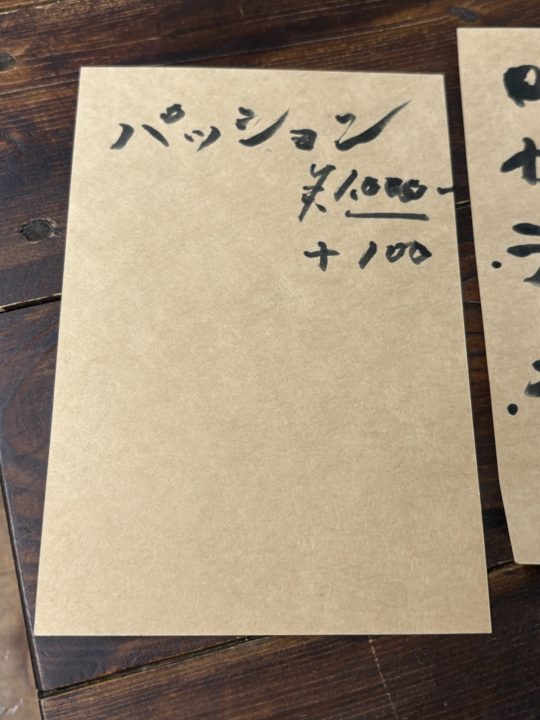 パッション
¥1,000-
+100